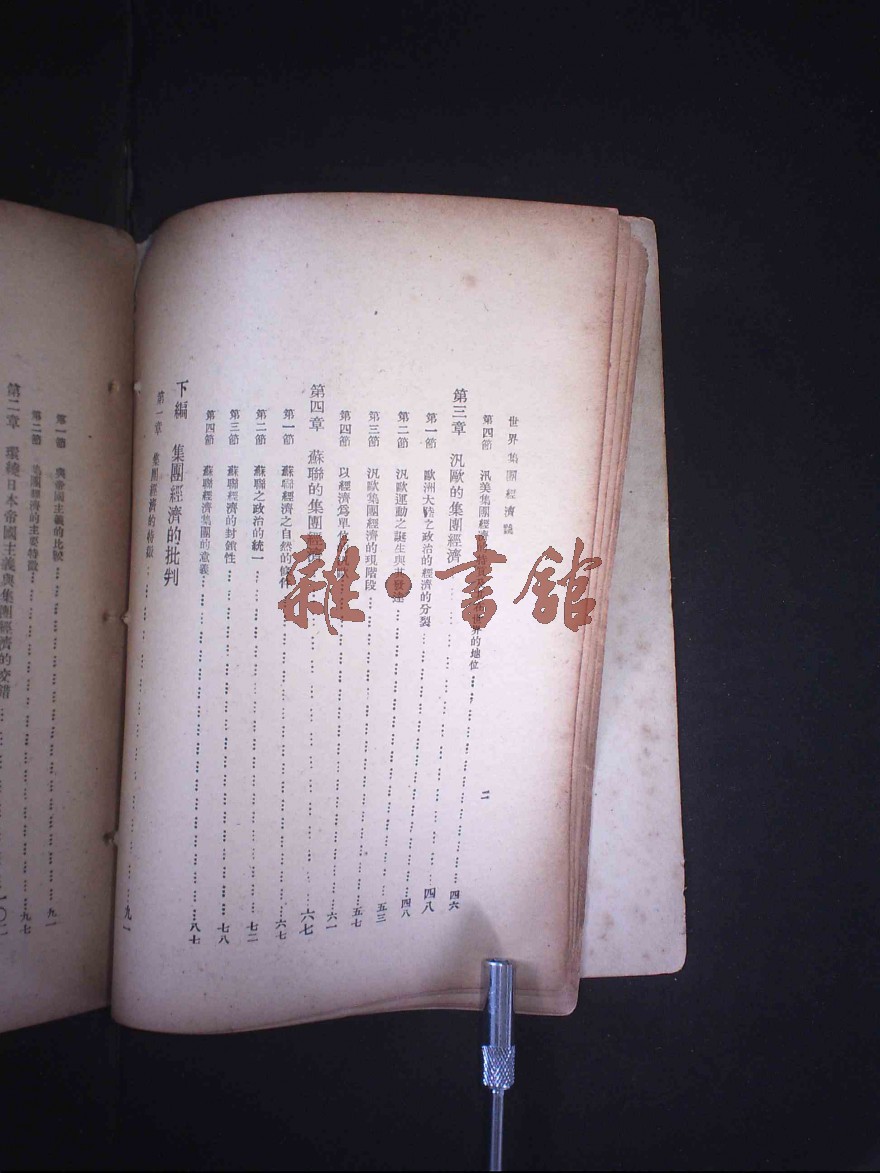 世界集團經濟論
二
第四節 汎美集團經濟 世界的地位……四六
第三章 汎歐的集團經濟……四八
第一節 歐洲大陸之政治的經濟的分裂……四八
第二節 汎歐運動之誕生與其發達……五三
第三節 汎歐集團經濟的現階段……五七
第四節 以經濟爲單位……六一
第四章 蘇聯的集團經濟……六七
第一節 蘇聯經濟之自然的條件……六七
第二節 蘇聯之政治的統一……七二
第三節 蘇聯經濟的封鎖性……七八
第四節 蘇聯經濟集團的意義……八七
下編 集團經濟的批判
第一章 集團經濟的特徵……九一
第一節 與帝國主義的比較……九一
第二節 集團經濟的主要特徵……九七
第二章 環繞日本帝國主義與集團經濟的交錯……一〇二
雜·書館